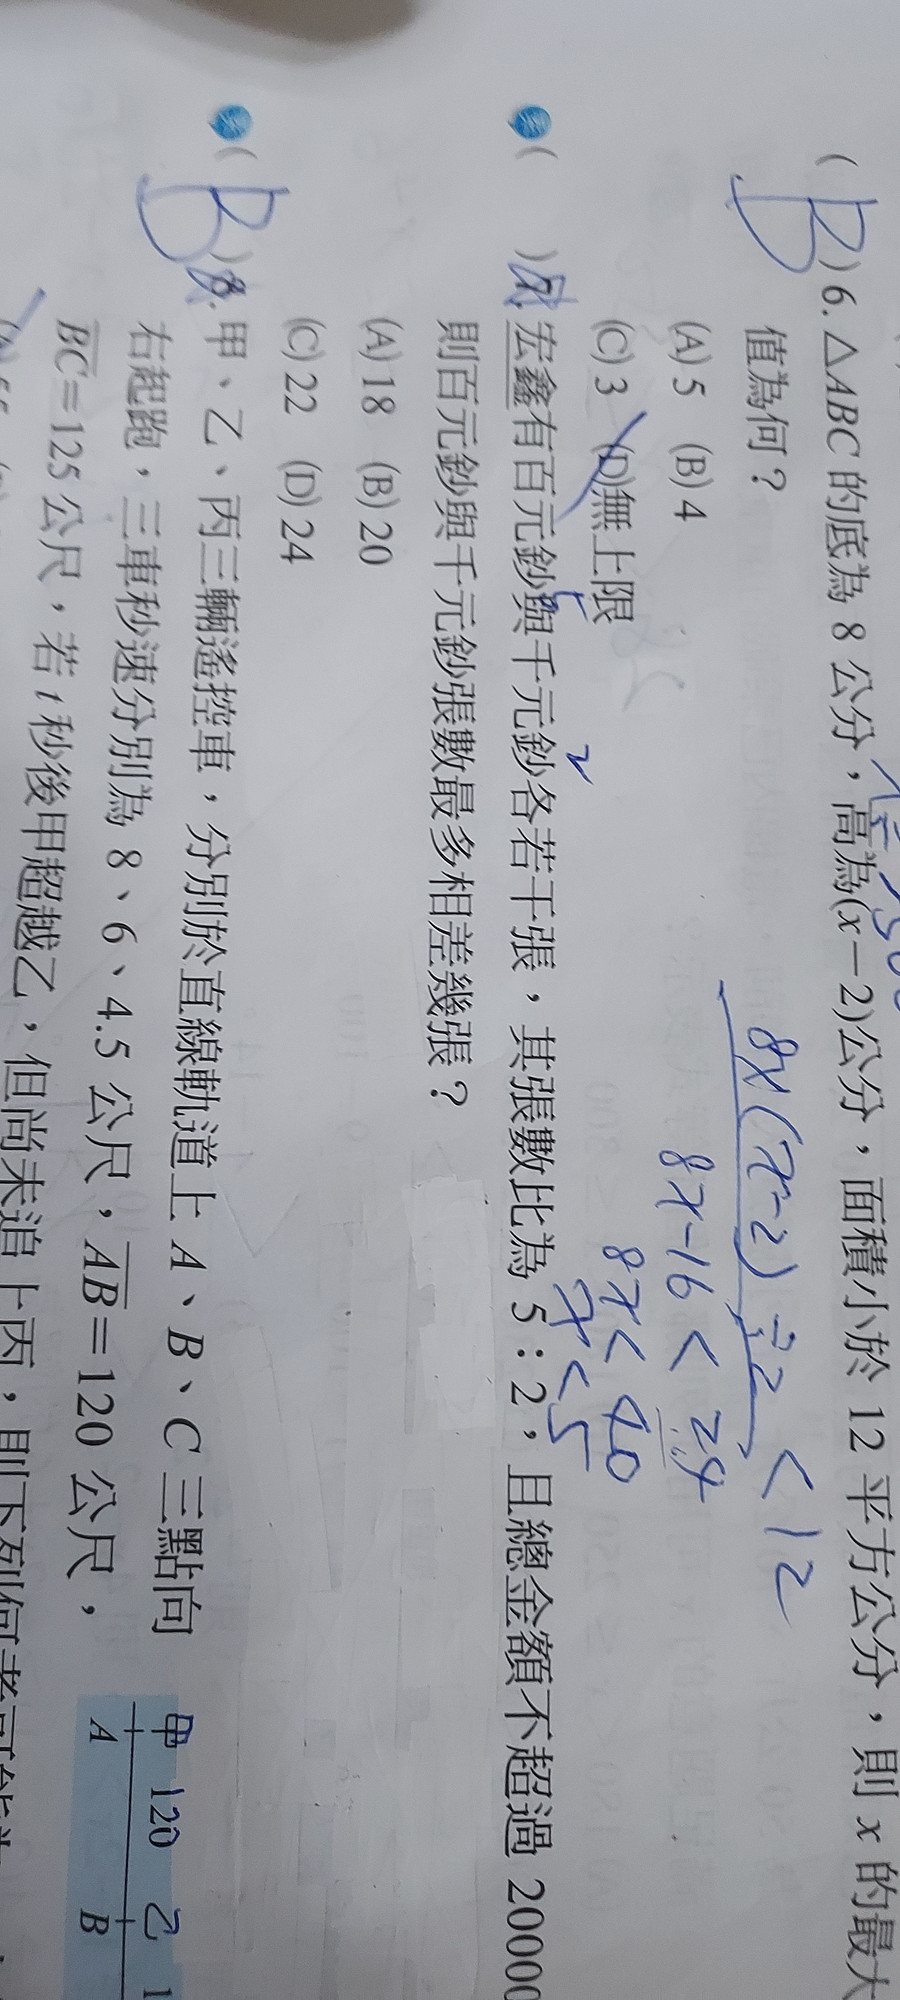 (B)6. △ABC 的底為 8 公分，高為(x－2)公分，面積小於 12 平方公分，則 x 的最大
值為何？
8x(x-2)÷2 < 12
(A) 5 (B) 4
8x-16 < 24
(C) 3 (D)無上限
8x < 40
x < 5
5 2
( )7. 宏鑫有百元鈔與千元鈔各若干張，其張數比為 5：2，且總金額不超過 20000
則百元鈔與千元鈔張數最多相差幾張？
(A) 18 (B) 20
(C) 22 (D) 24
(B)8. 甲、乙、丙三輛遙控車，分別於直線軌道上 A、B、C 三點向
右起跑，三車秒速分別為 8、6、4.5 公尺，AB＝120 公尺，
BC＝125 公尺，若 t 秒後甲超越乙，但尚未追上丙，則下列何者可能為
甲 120 乙 1
A B